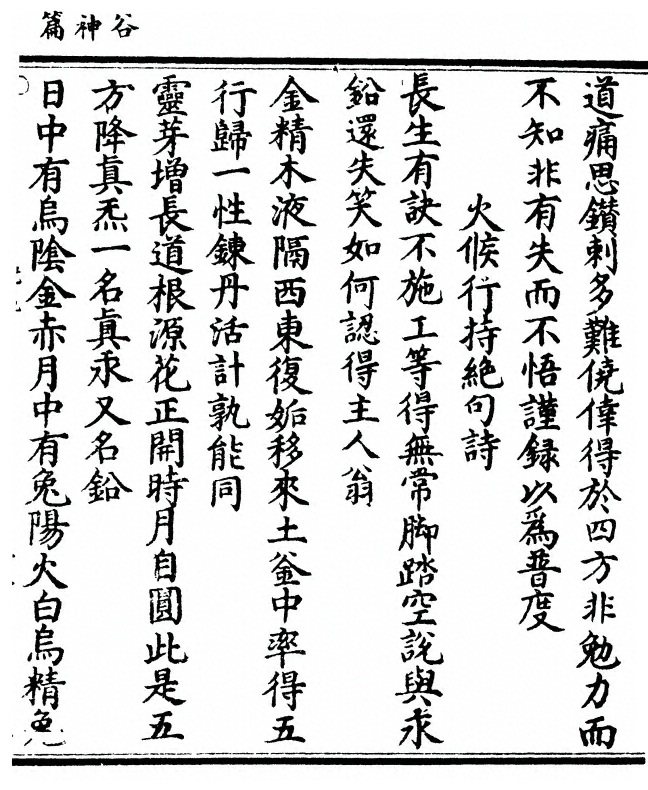 谷神篇
道痛思鑽刺多難僥倖得於四方非勉力而
不知非有失而不悟謹録以爲普度
火候行持絶句詩
長生有訣不施工等得無常脚踏空説與汞
鉛還失笑如何認得主人翁
金精木液隔西東復姤移來土釜中率得五
行歸一性鍊丹活計孰能同
靈芽增長道根源花正開時月自圓此是五
方降眞炁一名眞汞又名鉛
日中有烏陰金赤月中有兔陽火白烏精兔